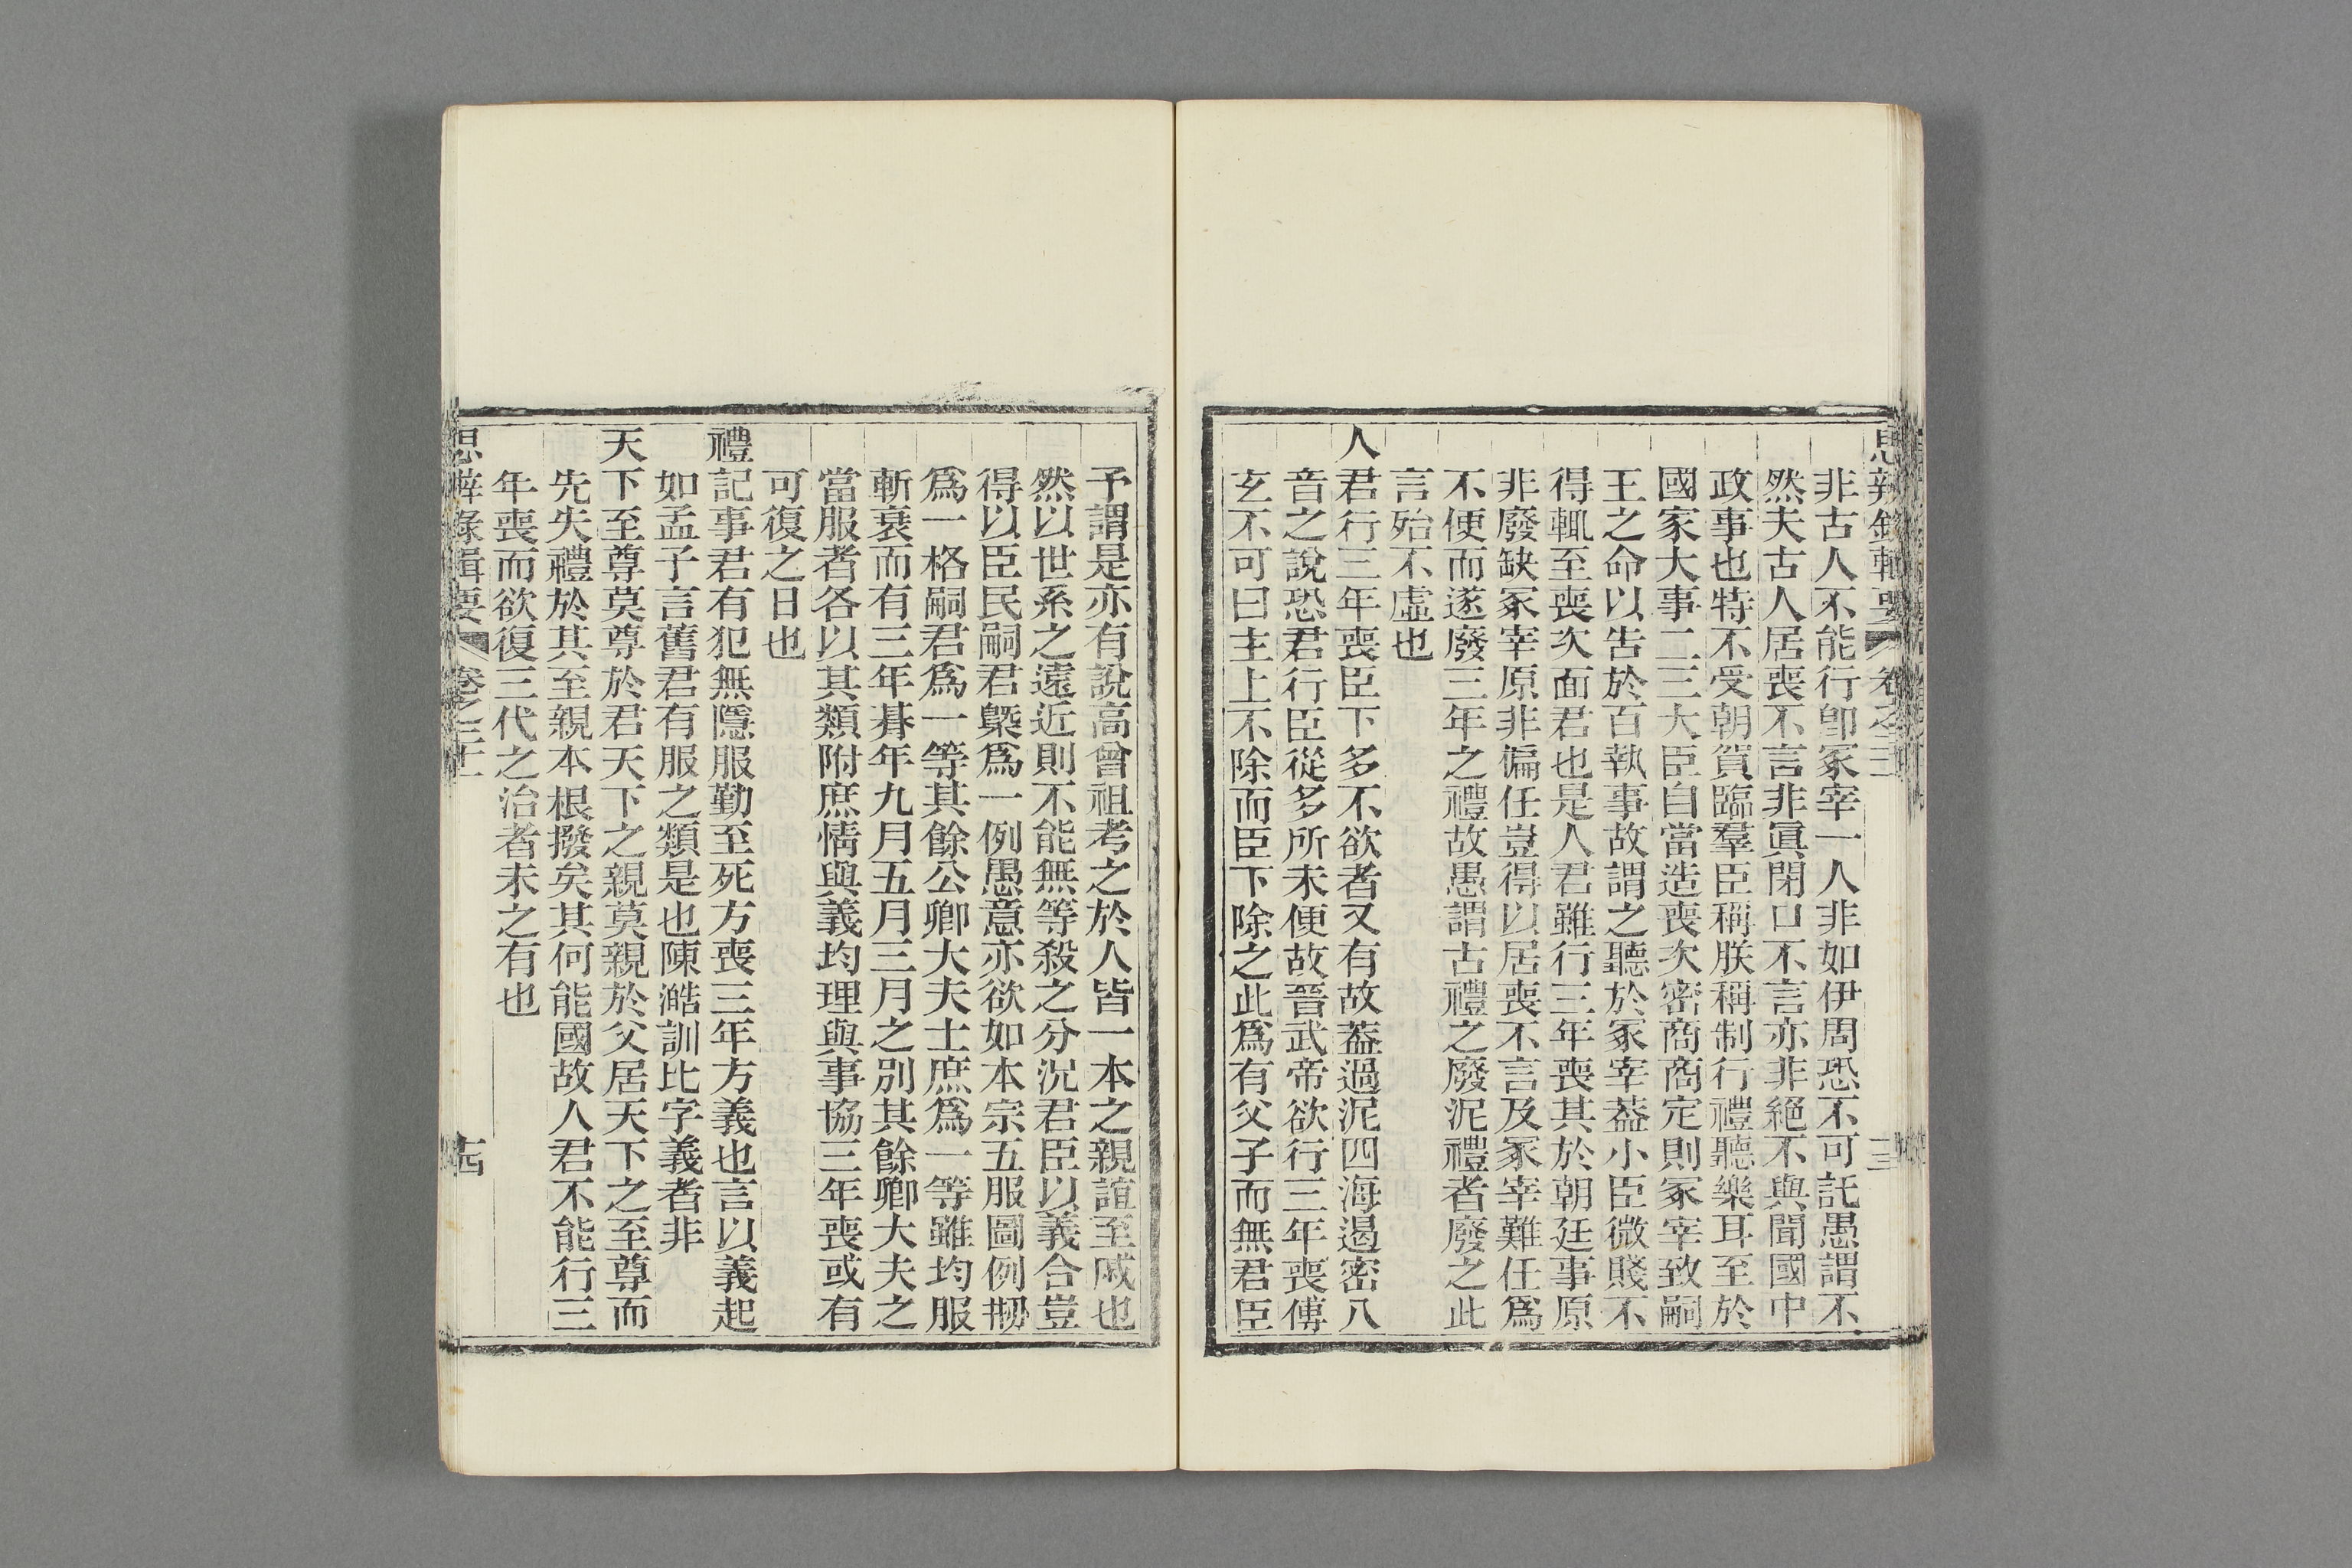 思辨錄輯要 卷之二十一
非古人不能行卽冢宰一人非如伊周恐不可託愚謂不
然夫古人居喪不言非眞閉口不言亦非絕不與聞國中
政事也特不受朝賀臨羣臣稱朕稱制行禮聽樂耳至於
國家大事二三大臣自當造喪次密商商定則冢宰致嗣
王之命以告於百執事故謂之聽於冢宰葢小臣微賤不
得輒至喪次面君也是人君雖行三年喪其於朝廷事原
非廢缺冢宰原非偏任豈得以居喪不言及冢宰難任爲
不便而遂廢三年之禮故愚謂古禮之廢泥禮者廢之此
言殆不虛也
人君行三年喪臣下多不欲者又有故葢過泥四海遏密八
音之說恐君行臣從多所未便故晉武帝欲行三年喪傅
玄不可曰主上不除而臣下除之此爲有父子而無君臣
予謂是亦有說高曾祖考之於人皆一本之親誼至戚也
然以世系之遠近則不能無等殺之分況君臣以義合豈
得以臣民嗣君槩爲一例愚意亦欲如本宗五服圖例刱
爲一格嗣君爲一等其餘公卿大夫士庶爲一等雖均服
斬衰而有三年朞年九月五月三月之別其餘卿大夫之
當服者各以其類附庶情與義均理與事協三年喪或有
可復之日也
禮記事君有犯無隱服勤至死方喪三年方義也言以義起
如孟子言舊君有服之類是也陳澔訓比字義者非
天下至尊莫尊於君天下之親莫親於父居天下之至尊而
先失禮於其至親本根撥矣其何能國故人君不能行三
年喪而欲復三代之治者未之有也
思辨錄輯要 卷之二十一 十四